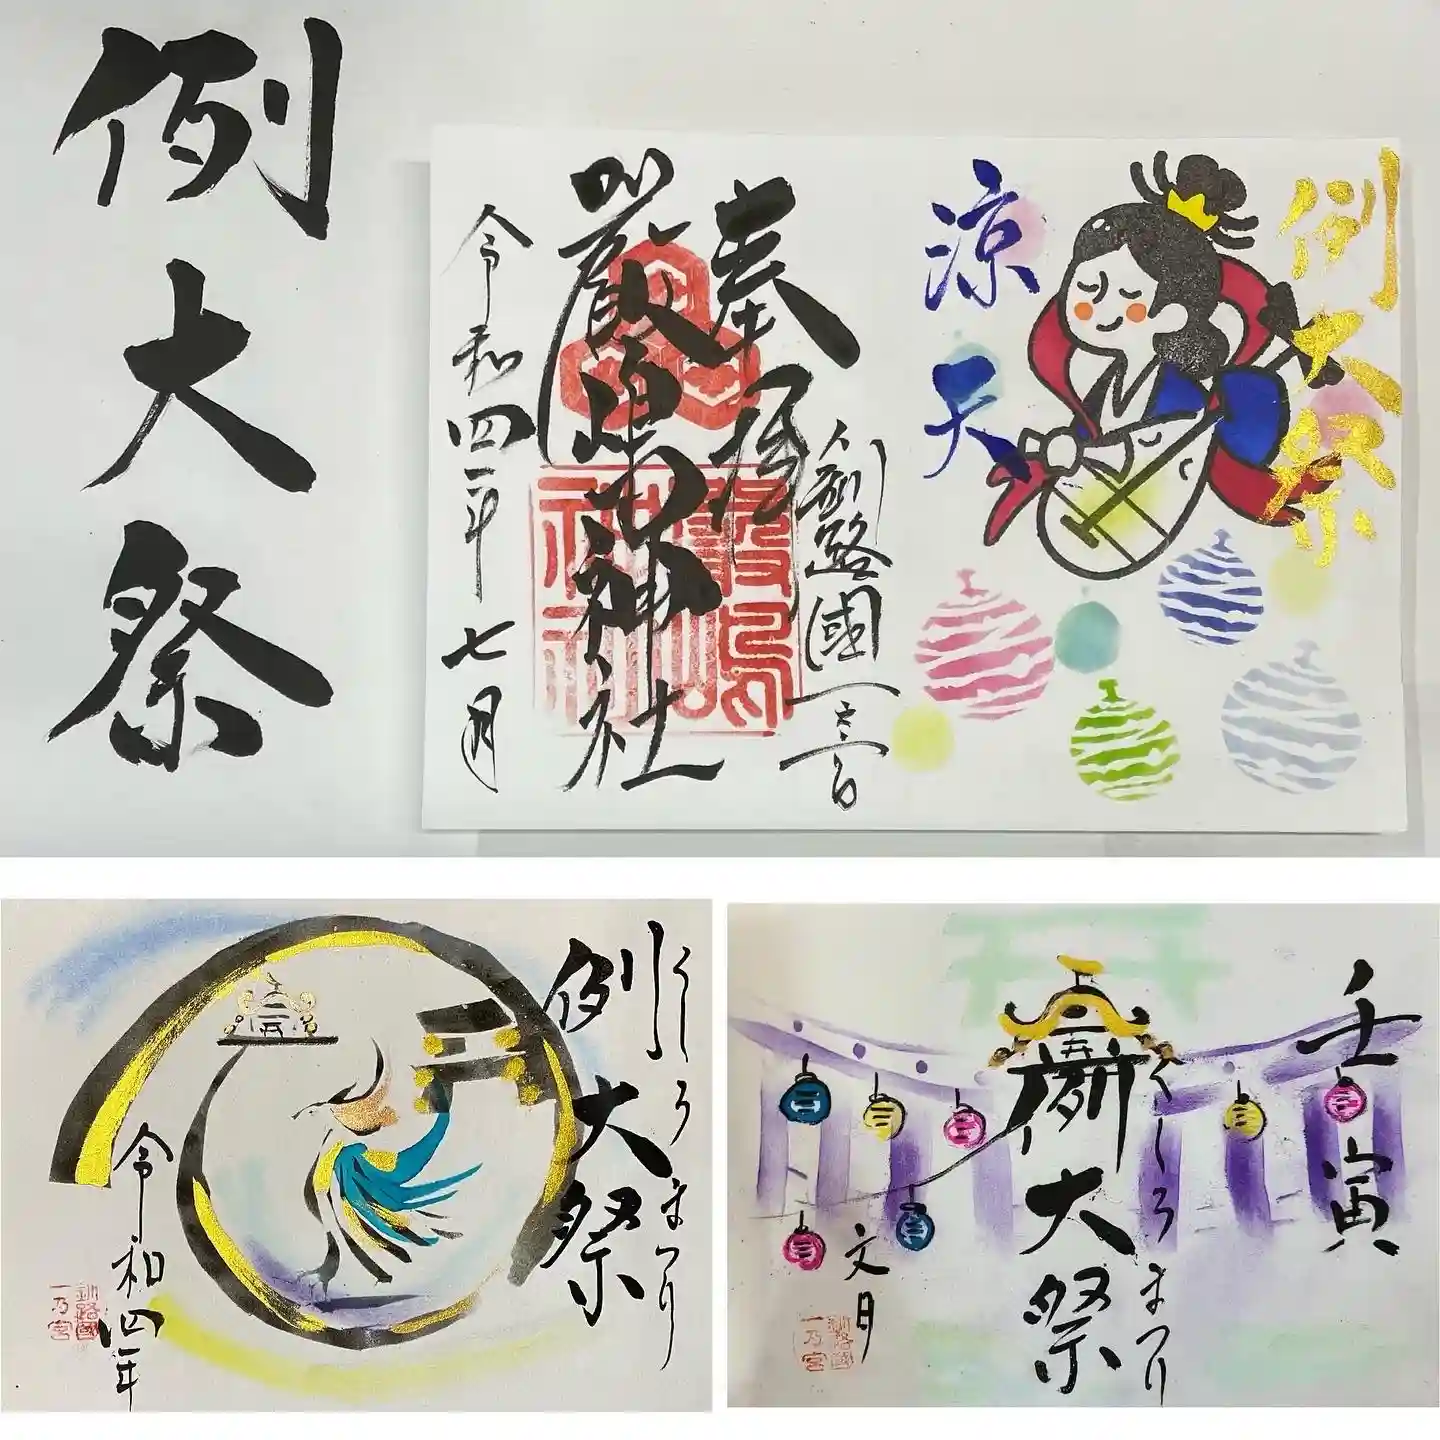 例大祭
例大祭
涼天
奉拝
釧路國一之宮
厳島神社
令和四年七月
くしろまつり
例大祭
令和四年
釧路國
一乃宮
壬寅
くしろまつり
例大祭
文月
釧路國
一乃宮